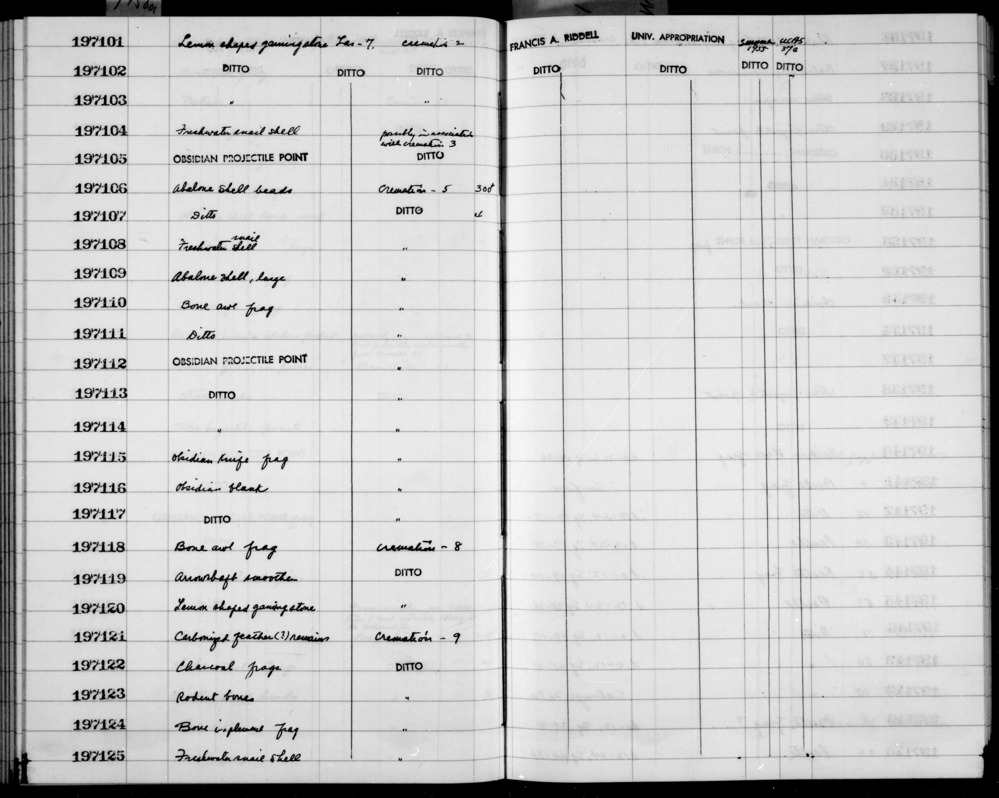 197101 Lemon shaped gaming stone Las-7, cremation 2 FRANCIS A. RIDDELL UNIV. APPROPRIATION Summer 1955 UCAS 270
197102 DITTO DITTO DITTO DITTO DITTO DITTO DITTO
197103 " "
197104 Freshwater snail shell possibly in association
with cremation 3
197105 OBSIDIAN PROJECTILE POINT DITTO
197106 Abalone shell beads Cremation - 5 308
197107 Ditto DITTO 4
197108 Freshwater snail shell "
197109 Abalone shell, large "
197110 Bone awl frag "
197111 Ditto "
197112 OBSIDIAN PROJECTILE POINT "
197113 DITTO "
197114 " "
197115 Obsidian knife frag "
197116 Obsidian blank "
197117 DITTO "
197118 Bone awl frag Cremation - 8
197119 Arrowshaft smoother DITTO
197120 Lemon shaped gaming stone "
197121 Carbonized feather (?) remains Cremation - 9
197122 Charcoal frags DITTO
197123 Rodent bones "
197124 Bone implement frag "
197125 Freshwater snail shell "